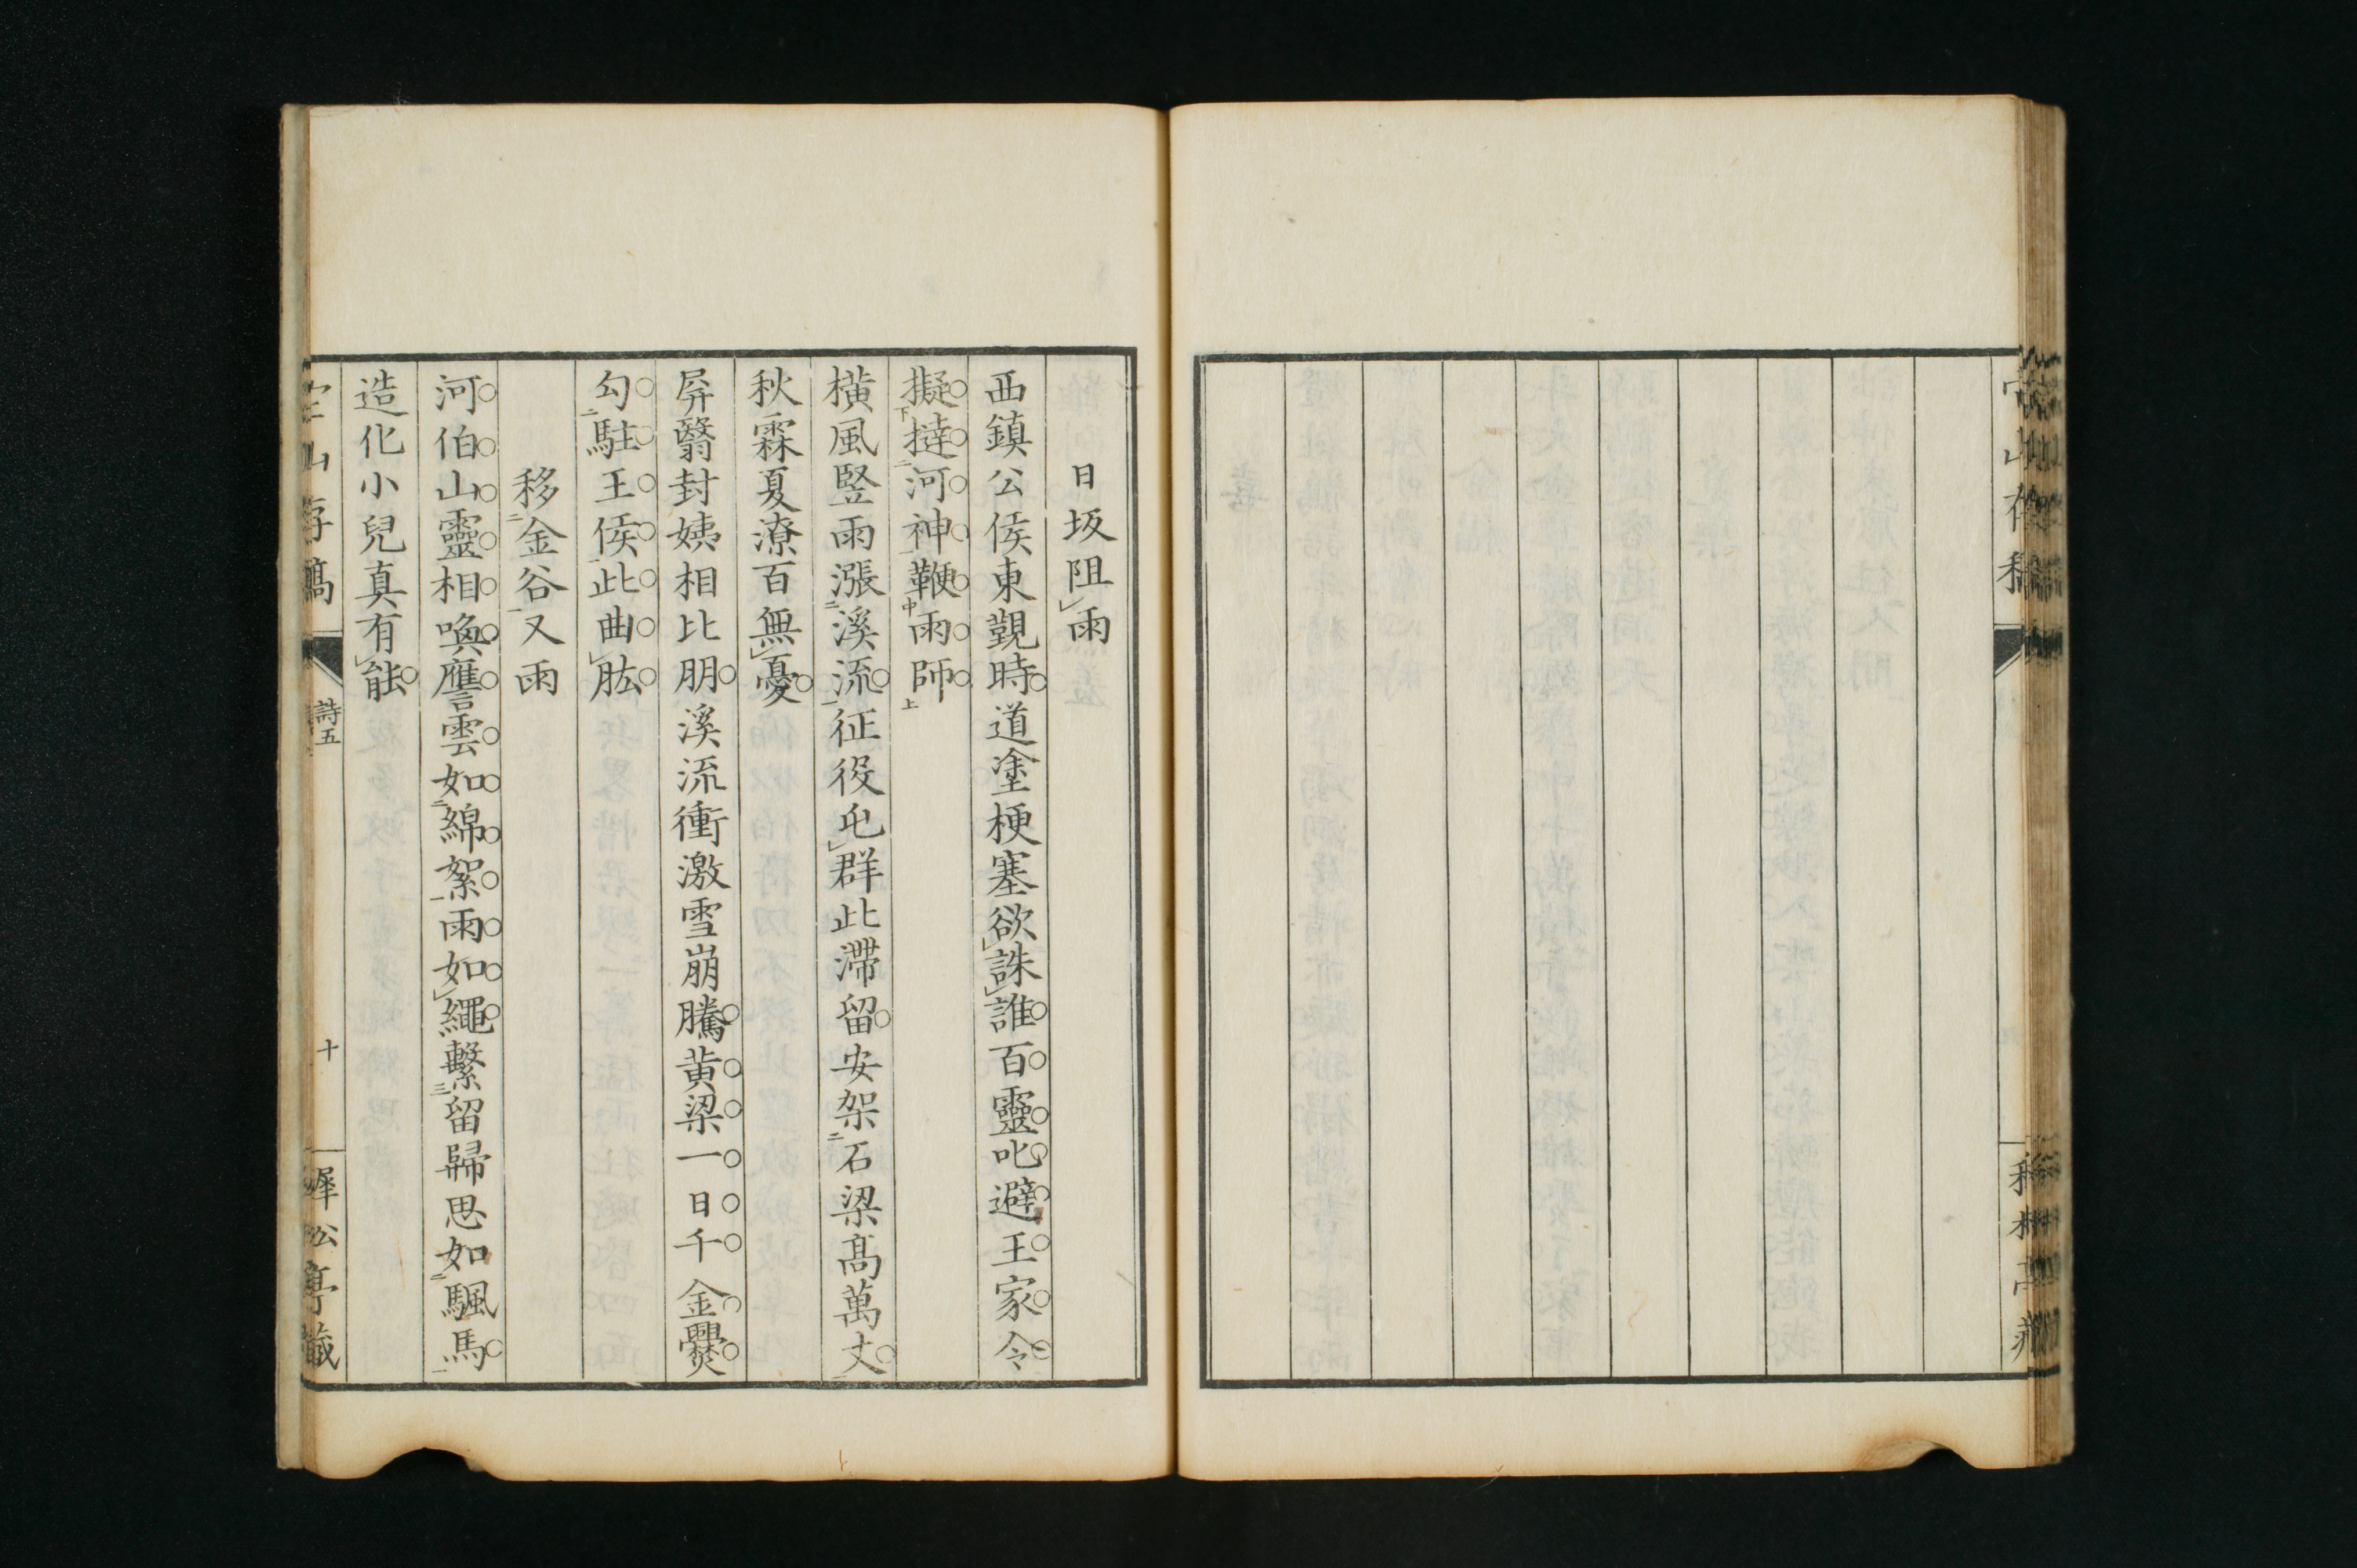 日坂阻雨
西鎮公侯東覲時道塗梗塞欲誅誰百靈叱避王家令
擬撻河神鞭雨師
橫風竪雨漲溪流征役屯群此滯留安架石梁髙萬丈
秋霖夏潦百無憂
屏翳封姨相比朋溪流衝激雪崩騰黄梁一日千金爨
勾駐王侯此曲肱
移金谷又雨
河伯山靈相喚譍雲如綿絮雨如繩繫留歸思如颿馬
造化小兒真有能
詩五
十